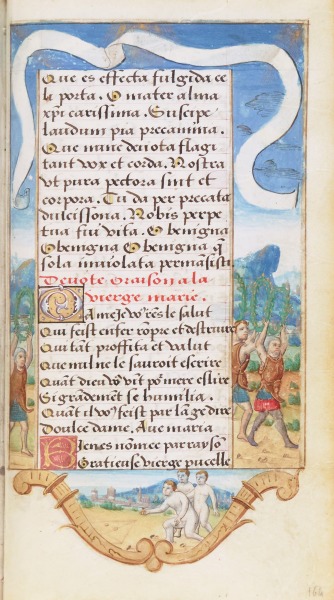 Que es effecta fulgida ce
li porta. O mater alma
xpi carissima. Suscipe
laudum pia precamina.
Que nunc deuota flagi
tant vox et corda. Nostra
vt pura pectora sint et
corpora. Tu da per precata
dulcissona. Nobis perpe
tua fiu vita. O benigna
O benigna O benigna q̄
sola inuiolata permansisti
Deuote oraison a la
vierge marie.
Dame Je vo9 rēs le salut
Qui feist enfer rōpre et destruire
Qui tāt proffita et valut
Que nul ne le sauroit escrire
Quāt dieu vo9 vīt po9 mere eslire
Si grādemēt se humilia.
Quāt il vo9 feist par lāge dire
Doulce dame. Aue maria
Bien es nōmee par rayson
Gratieuse vierge pucelle
164